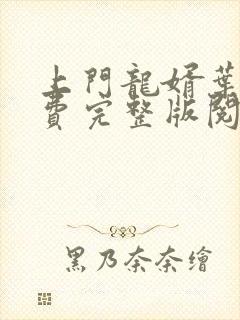 上門龍婿葉
費完整版閱
黑乃奈奈繪